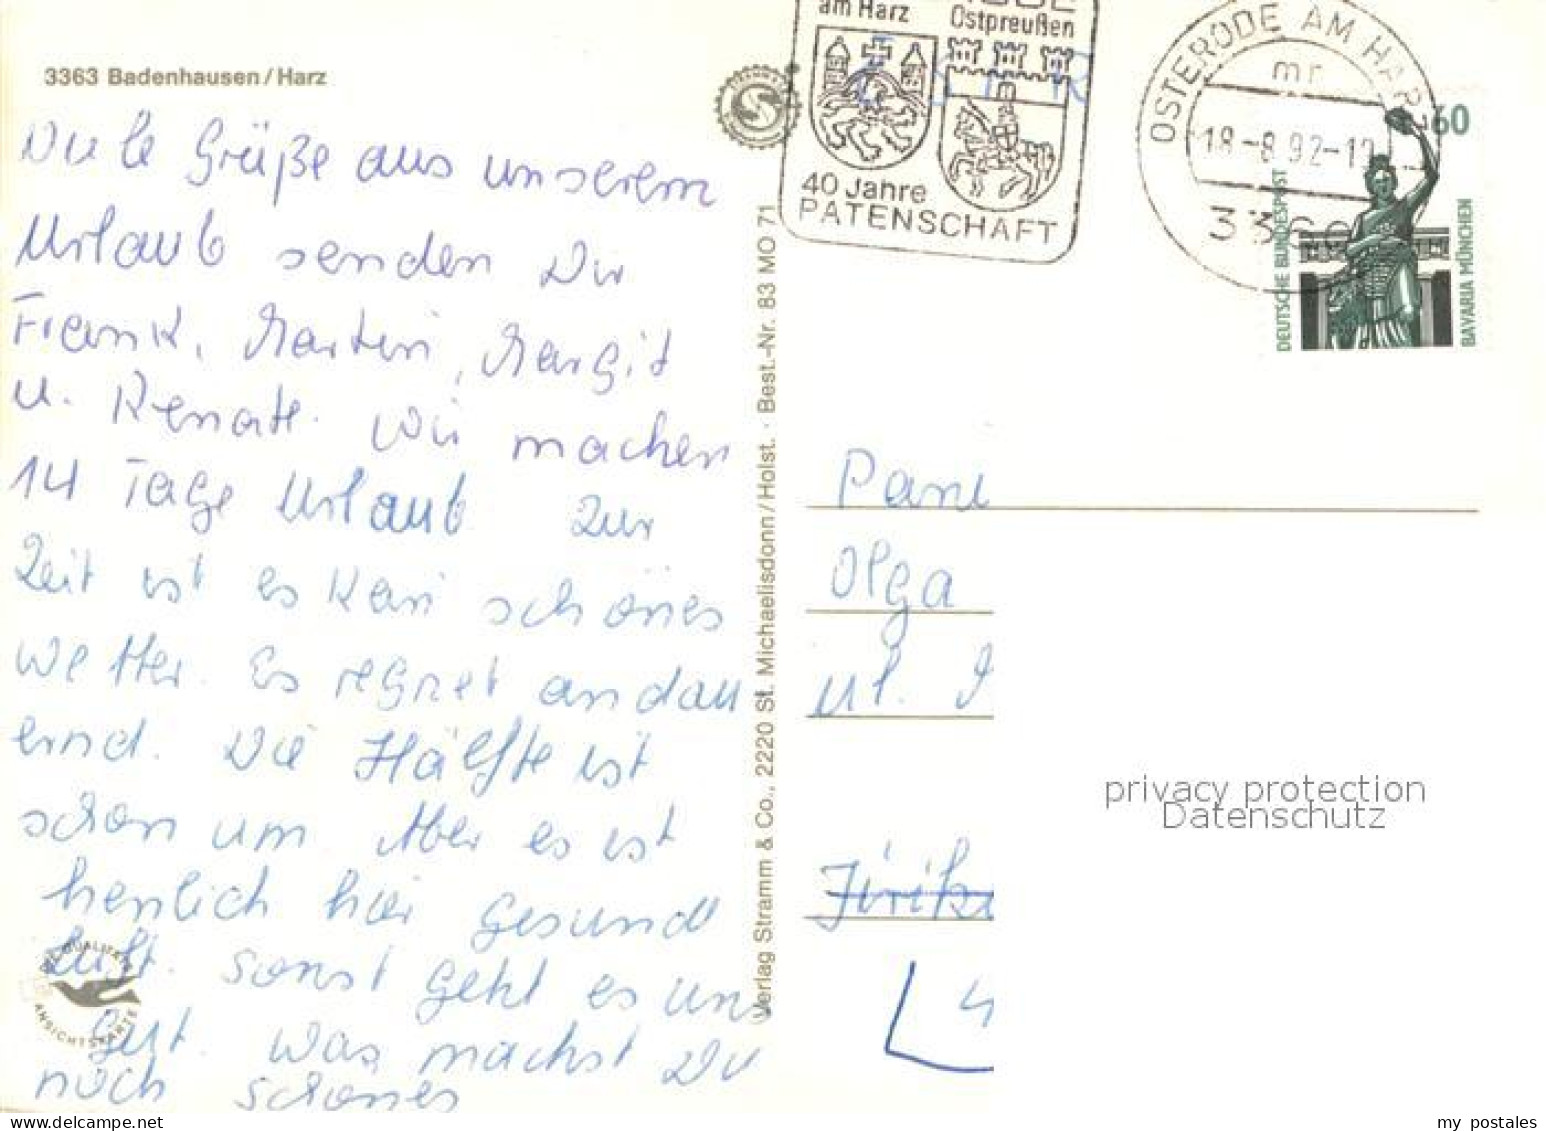 3363 Badenhausen/Harz
Viele Grüße aus unserem
Urlaub senden Dir
Frank, Martin, Margit
u. Renate. Wir machen
14 Tage Urlaub. Zur
Zeit ist es kein schönes
Wetter. Es regnet andau
ernd. Die Hälfte ist
schon um. Aber es ist
herrlich hier gesund
Luft. Sonst geht es uns
gut. Was machst Du
noch schönes
QUALITÄTS
ANSICHTSKARTE
Verlag Stramm & Co., 2220 St. Michaelisdonn/Holst. · Best.-Nr. 83 MO 71
am Harz
Ostpreußen
40 Jahre
PATENSCHAFT
OSTERODE AM HARZ
mr
18-8.92-1
336
60
DEUTSCHE BUNDESPOST
BAVARIA MÜNCHEN
Pani
Olga
ul.
privacy protection
Datenschutz
my postales